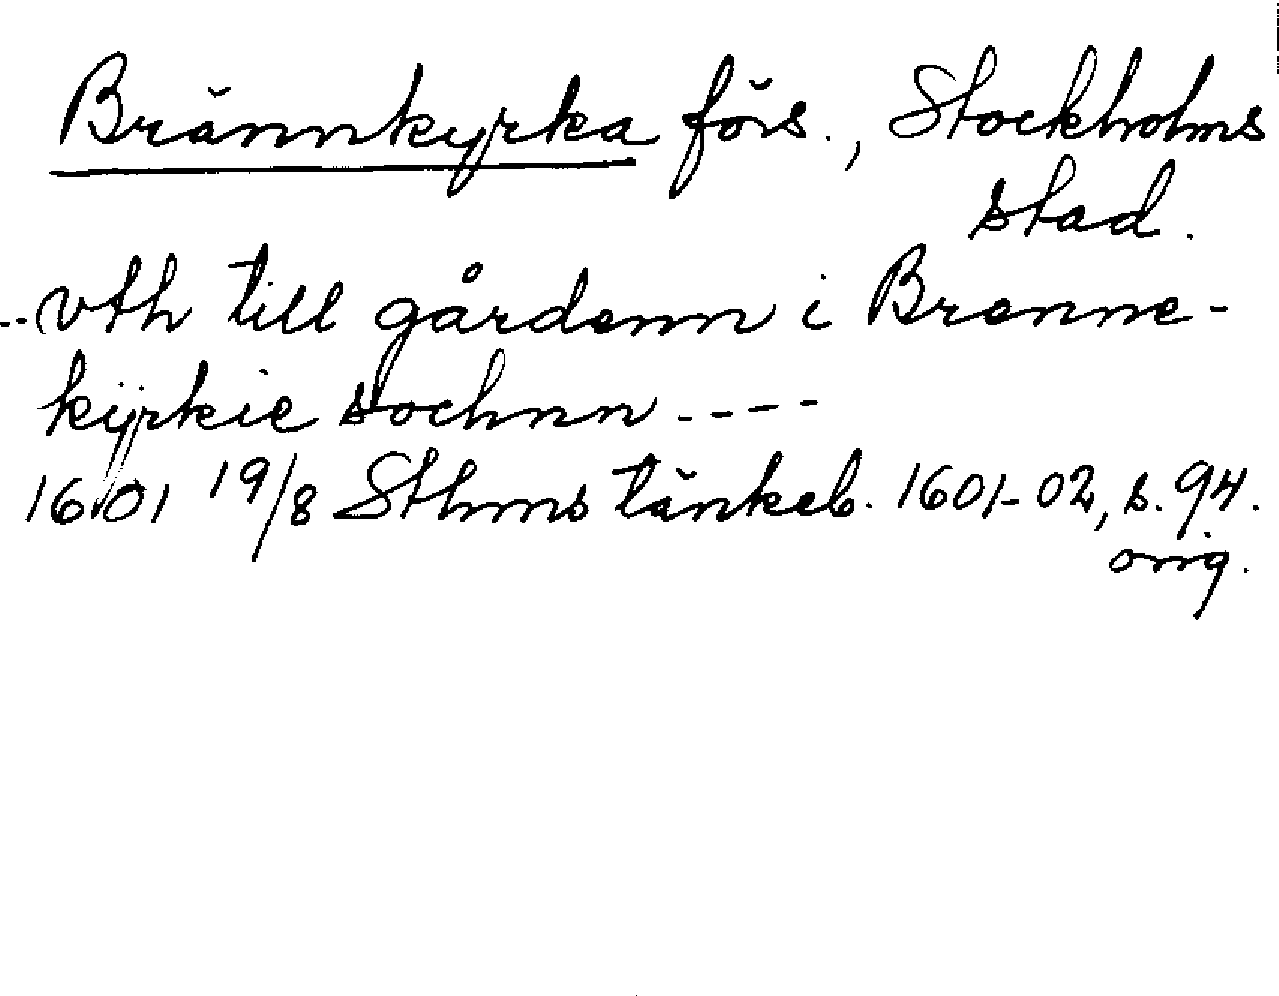 Brännkyrka förs., Stockholms
stad.
..vth till gårdenn i Brenne-
kÿrkie sochnn ----
1601 19/8 Sthms tänkeb. 1601-02, s. 94.
orig.